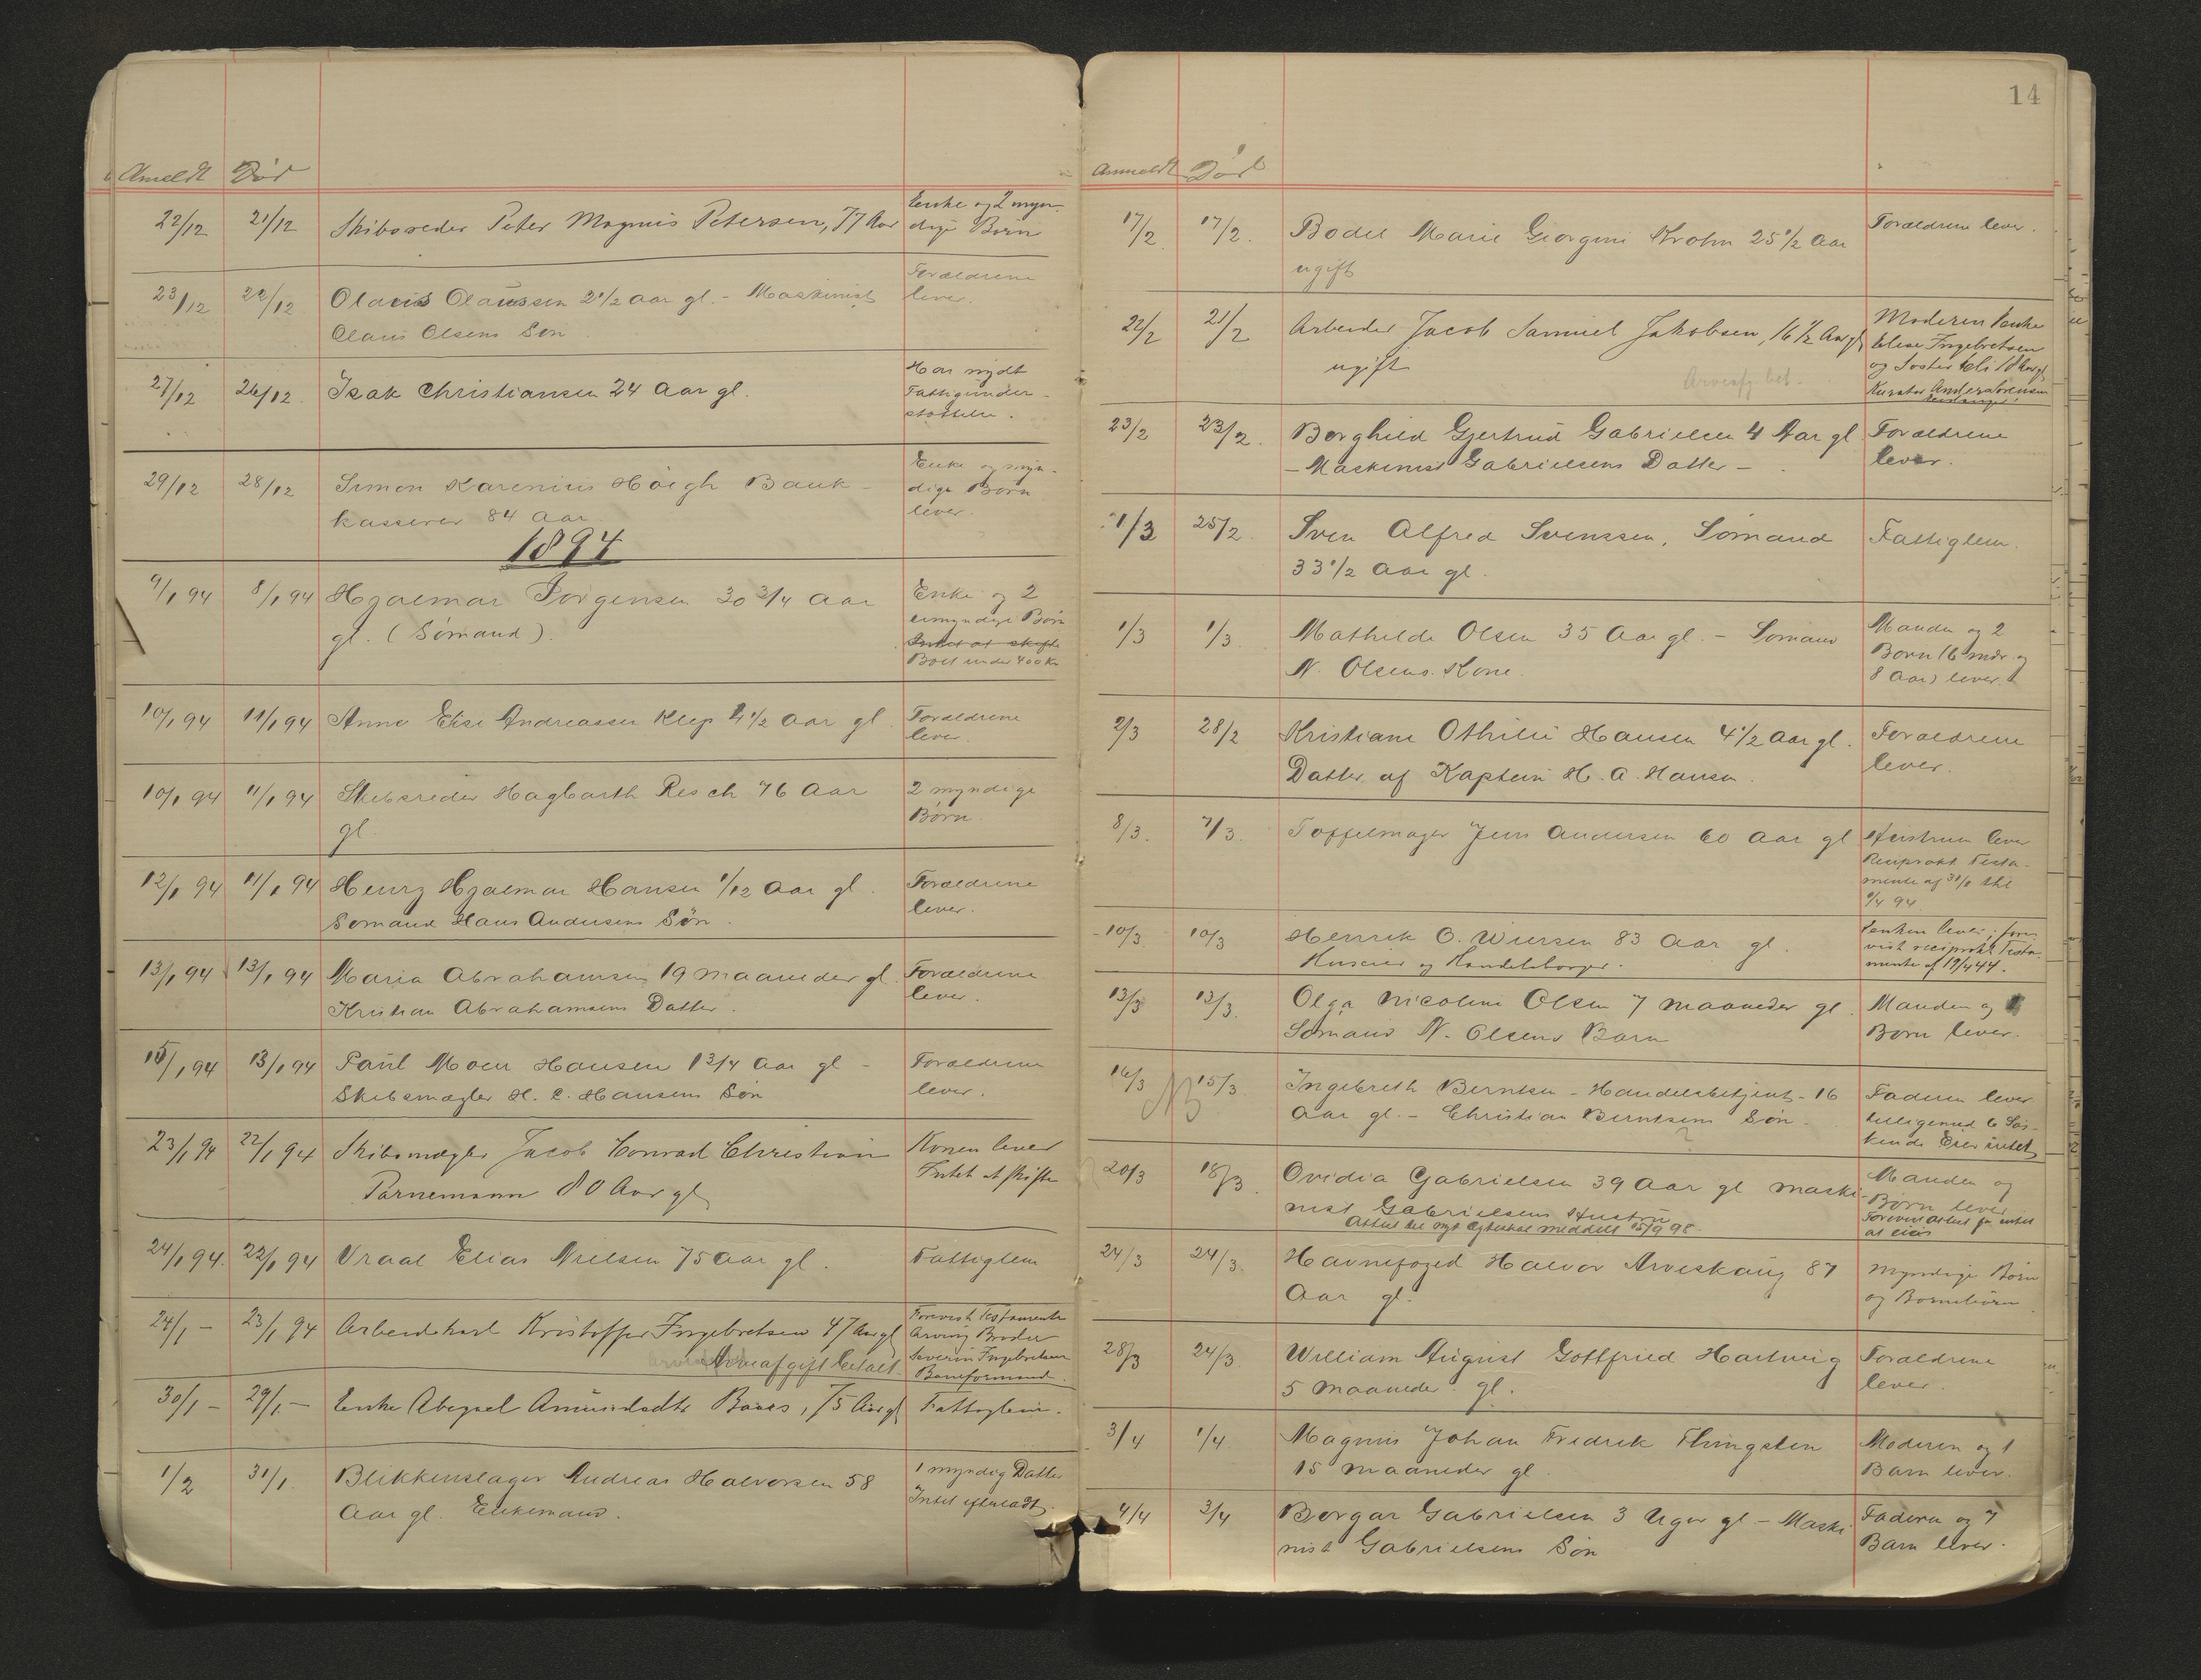 Anmeldt Död
22/12 21/12 Skibsreder Peter Magnus Petersen, 77 Aar
Enke og 2 myn-
dige Börn
23/12 22/12 Olaus Olaussen 2 1/2 Aar gl. - Maskinist
Olaus Olsens Sön
Forældrene
lever.
27/12 26/12. Isak Christiansen 24 Aar gl.
Har nydt
Fattigunder-
stöttelse.
29/12 28/12 Simon Karenius Höegh Bank-
kasserer 84 Aar
Enke og myn-
dige Börn
lever.
1894
9/1 94 8/1 94 Hjalmar Jörgensen 30 3/4 Aar
gl. (Sömand).
Enke og 2
umyndige Börn
Intet at skifte
Boet under 400 Kr
10/1 94 11/1 94 Anna Elise Andreassen Klep 4 1/2 Aar gl.
Forældrene
lever.
10/1 94 11/1 94 Skibsreder Hagbarth Resch 76 Aar
gl.
2 myndige
Börn.
12/1 94 11/1 94 Henry Hjalmar Hansen 1/12 Aar gl.
Sömand Hans Andersens Sön.
Forældrene
lever.
13/1 94 13/1 94 Maria Abrahamsen 19 maaneder gl.
Kristian Abrahamsens Datter.
Forældrene
lever.
15/1 94 13/1 94 Paul Moen Hansen 1 3/4 Aar gl -
Skibsmægler H. C. Hansens Sön
Forældrene
lever.
23/1 94 22/1 94 Skibsmægler Jacob Conrad Christian
Parnemann 80 Aar gl
Konen lever
Intet at skifte
24/1 94. 22/1 94 Vraal Elias Nielsen 75 Aar gl.
Fattiglem
24/1 - 23/1 94 Arbeidskarl Kristoffer Ingebretsen 47 Aar gl
Arveafgift betalt.
Forevist Testamente
Arving Broder
Severin Ingebretsen
Baneformand.
30/1 - 29/1 - Enke Abegael Amundsdatter Boies, 75 Aar gl
Fattiglem.
1/2 31/1. Blikkenslager Andreas Halvorsen 58
Aar gl. Enkemand.
1 myndig Datter
Intet efterladt.
14
Anmeldt Död
17/2. 17/2. Bodil Marie Georgine Krohn 25 1/2 Aar
ugift
Forældrene lever.
22/2 21/2 Arbeider Jacob Samuel Jakobsen, 16 1/2 Aar gl
ugift
Arveafg. bet.
Moderen Enke
Elise Ingebretsen
og Söster Eli 18 Aar gl.
Kurator
23/2 23/2. Borghild Gjertrud Gabrielsen 4 Aar gl
- Maskinist Gabrielsens Datter -
Forældrene
lever.
1/3 25/2. Sven Alfred Svenssen, Sömand
33 1/2 Aar gl.
Fattiglem.
1/3 1/3. Mathilde Olsen 35 Aar gl. - Sömand
N. Olsens Kone.
Manden og 2
Börn (6 mdr. og
8 Aar) lever.
2/3 28/2 Kristiane Othilie Hansen 4 1/2 Aar gl.
Datter af Kaptein H. A. Hansen.
Forældrene
lever.
8/3. 7/3. Toffelmager Jens Andersen 60 Aar gl
Hustruen lever
Reciprokt Testa-
mente af
94
10/3. 10/3 Henrik O. Wiersen 83 Aar gl.
Kuserer og Handelsborger.
Enken lever; fore-
vist reciprokt Testa-
mente af 19/4 44.
13/3 13/3. Olga Nicoline Olsen 7 maaneder gl.
Sömand N. Olsens Barn
Manden og
Börn lever.
16/3 NB 15/3 Ingebreth Berntsen - Handelsbetjent - 16
Aar gl. - Christian Berntsens Sön.
Faderen lever
tilligemed 6 Sös-
kende Eier intet
20/3 18/3 Ovidia Gabrielsen 39 Aar gl Maski-
nist Gabrielsens Hustru
Attest til nyt Ægteskab meddelt 15/9 98.
Manden og
Börn lever
Forevist Attest for intet
at eies
24/3 24/3. Havnefoged Halvor Arveskaug 87
Aar gl.
Myndige Börn
og Börnebörn.
28/3 24/3. William August Gottfried Hartwig
5 maaneder gl.
Forældrene
lever.
3/4 1/4. Magnus Johan Fredrik Thingsten
15 maaneder gl.
Moderen og 1
Barn lever.
4/4 3/4 Borgar Gabrielsen 3 Uger gl - Maski-
nist Gabrielsens Sön
Faderen og 7
Barn lever.